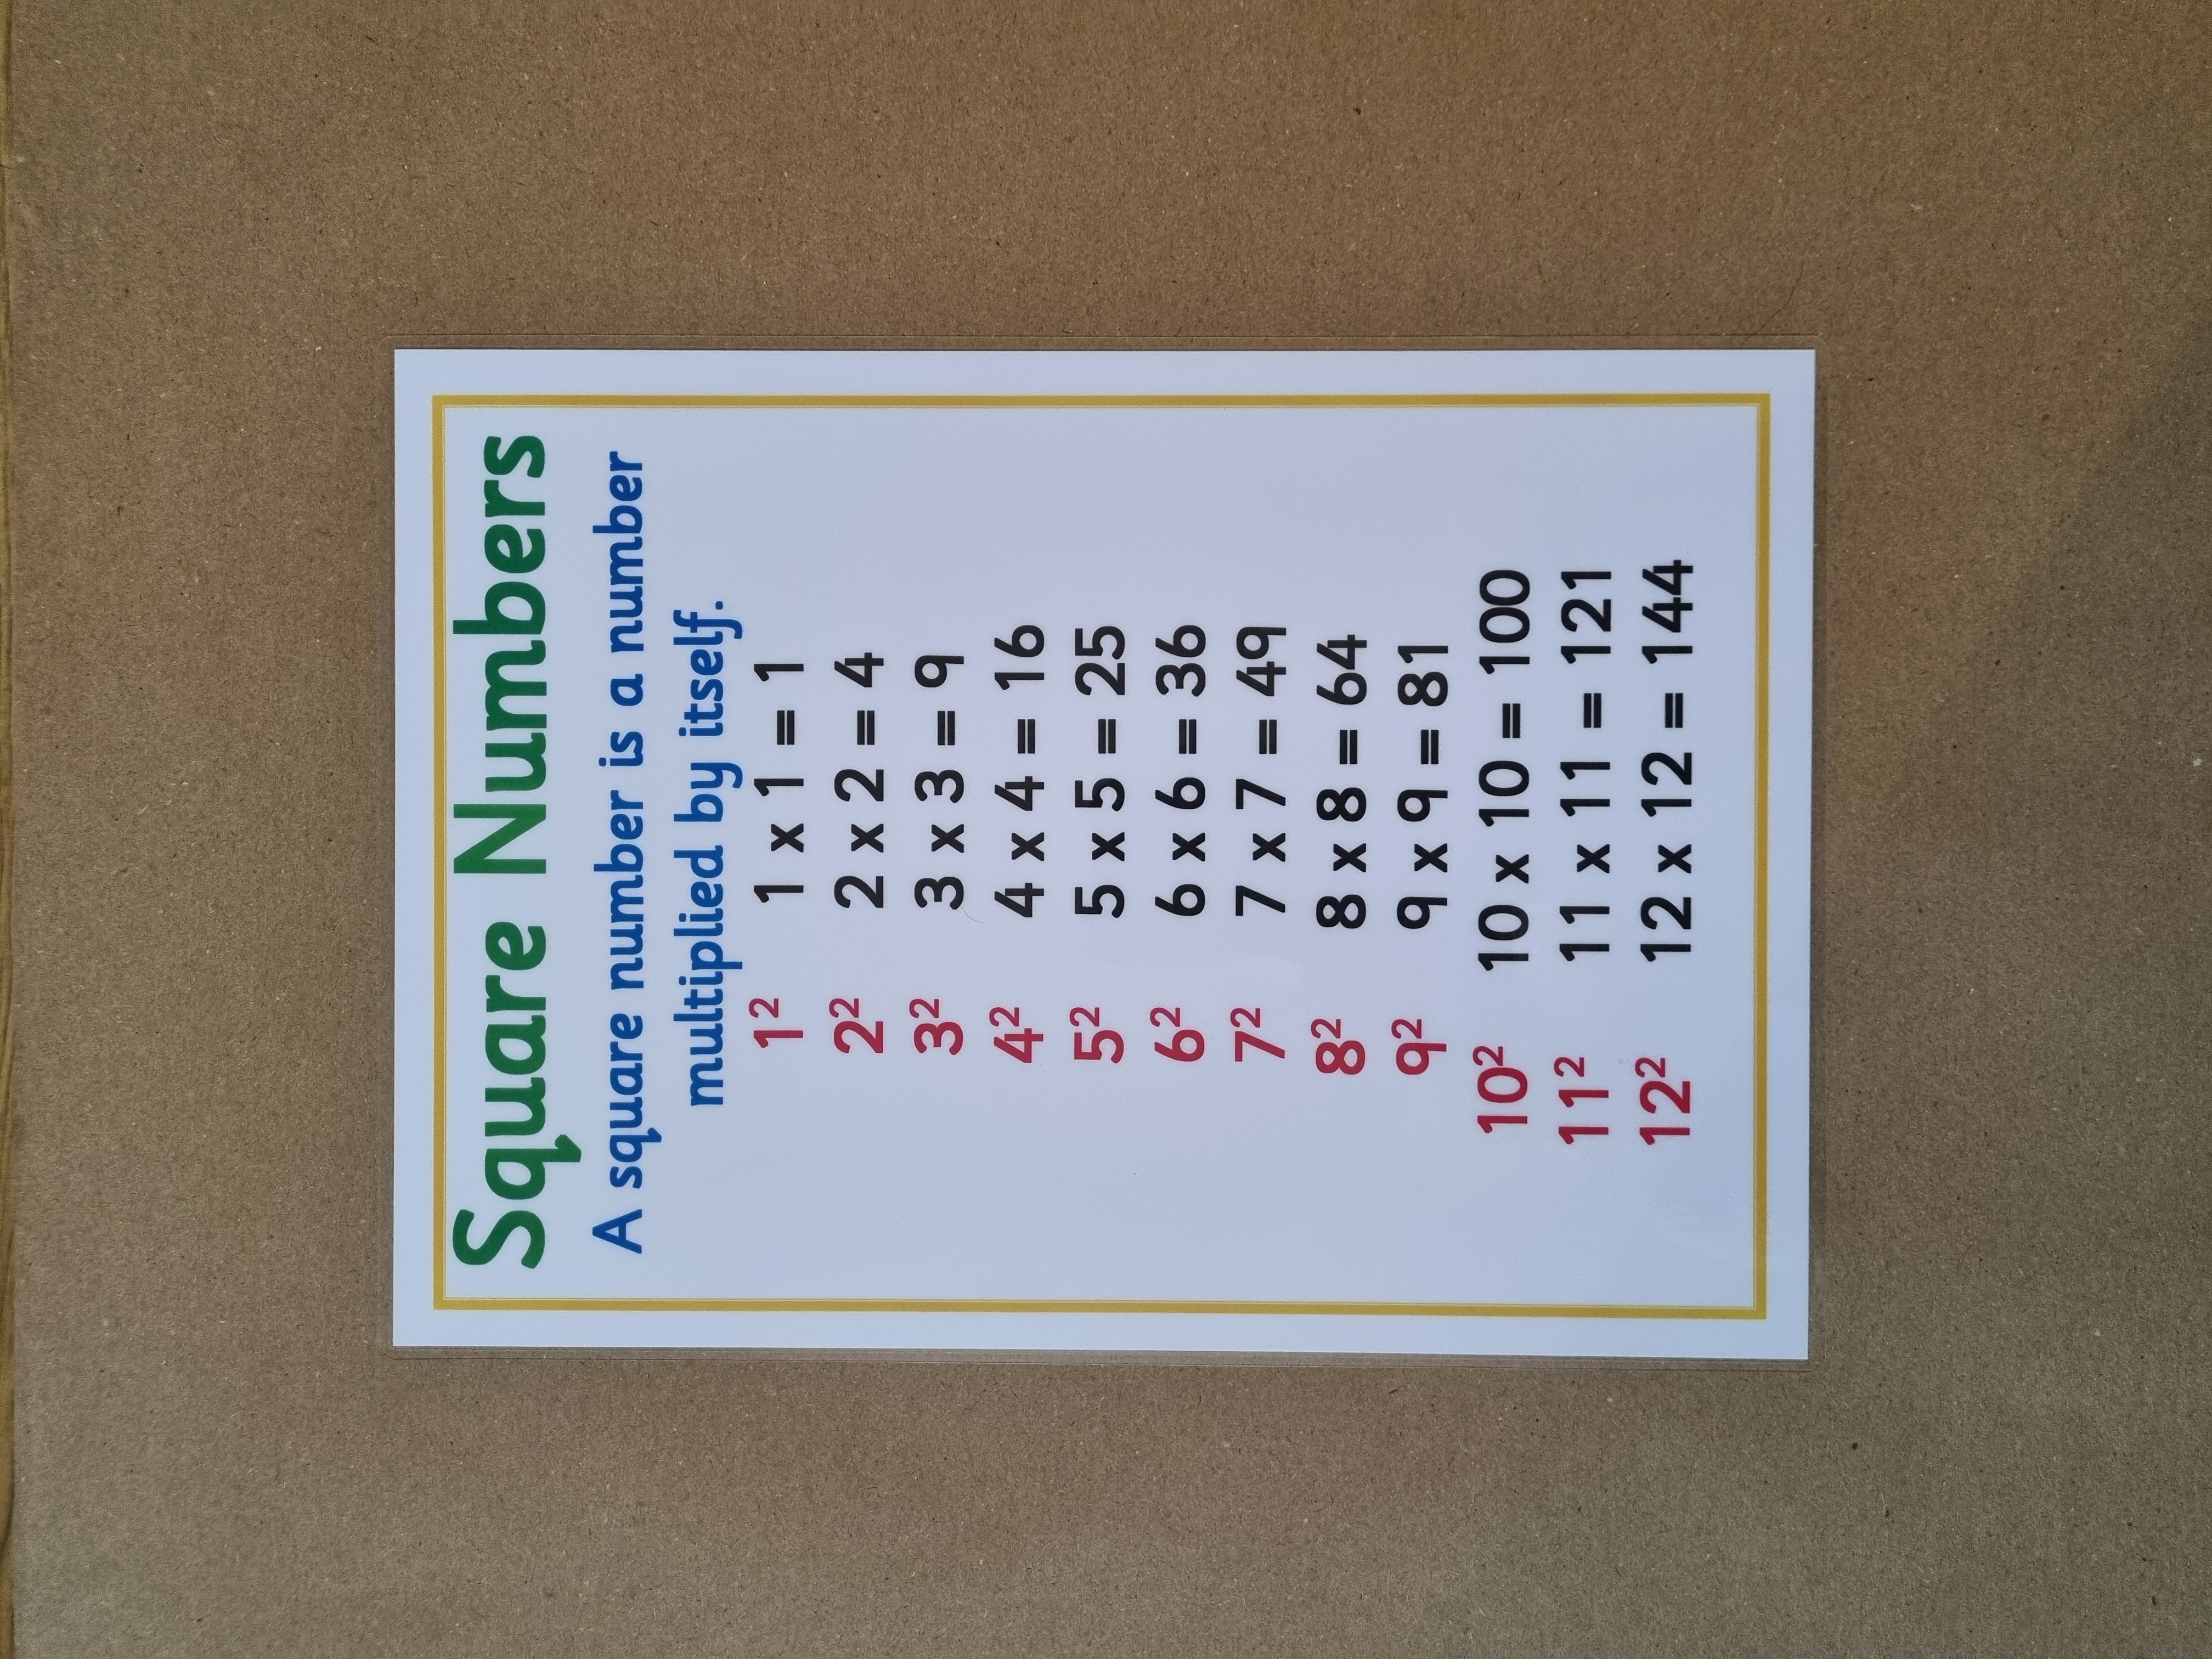 Square Numbers
A square number is a number
multiplied by itself.
1² 1 x 1 = 1
2² 2 x 2 = 4
3² 3 x 3 = 9
4² 4 x 4 = 16
5² 5 x 5 = 25
6² 6 x 6 = 36
7² 7 x 7 = 49
8² 8 x 8 = 64
9² 9 x 9 = 81
10² 10 x 10 = 100
11² 11 x 11 = 121
12² 12 x 12 = 144